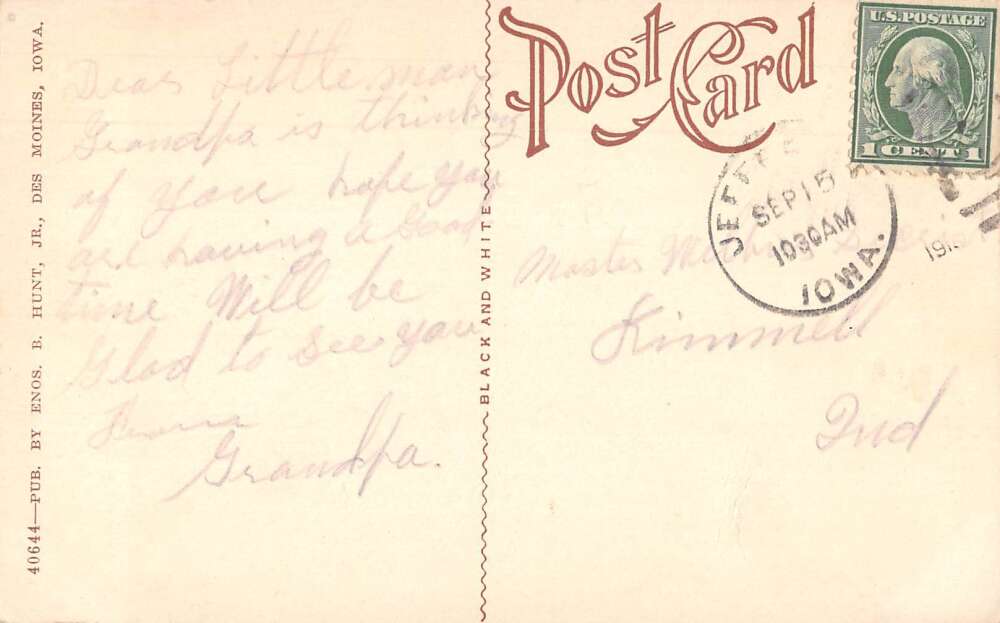 40644—PUB. BY ENOS. B. HUNT, JR., DES MOINES, IOWA.
Dear Little man
Grandpa is thinking
of you hope you
are having a Good
time Will be
Glad to see you
Grandpa.
BLACK AND WHITE
POST CARD
U.S. POSTAGE
1 CENT 1
SEP 15
1030 AM
IOWA.
Master
Kimmell
Ind